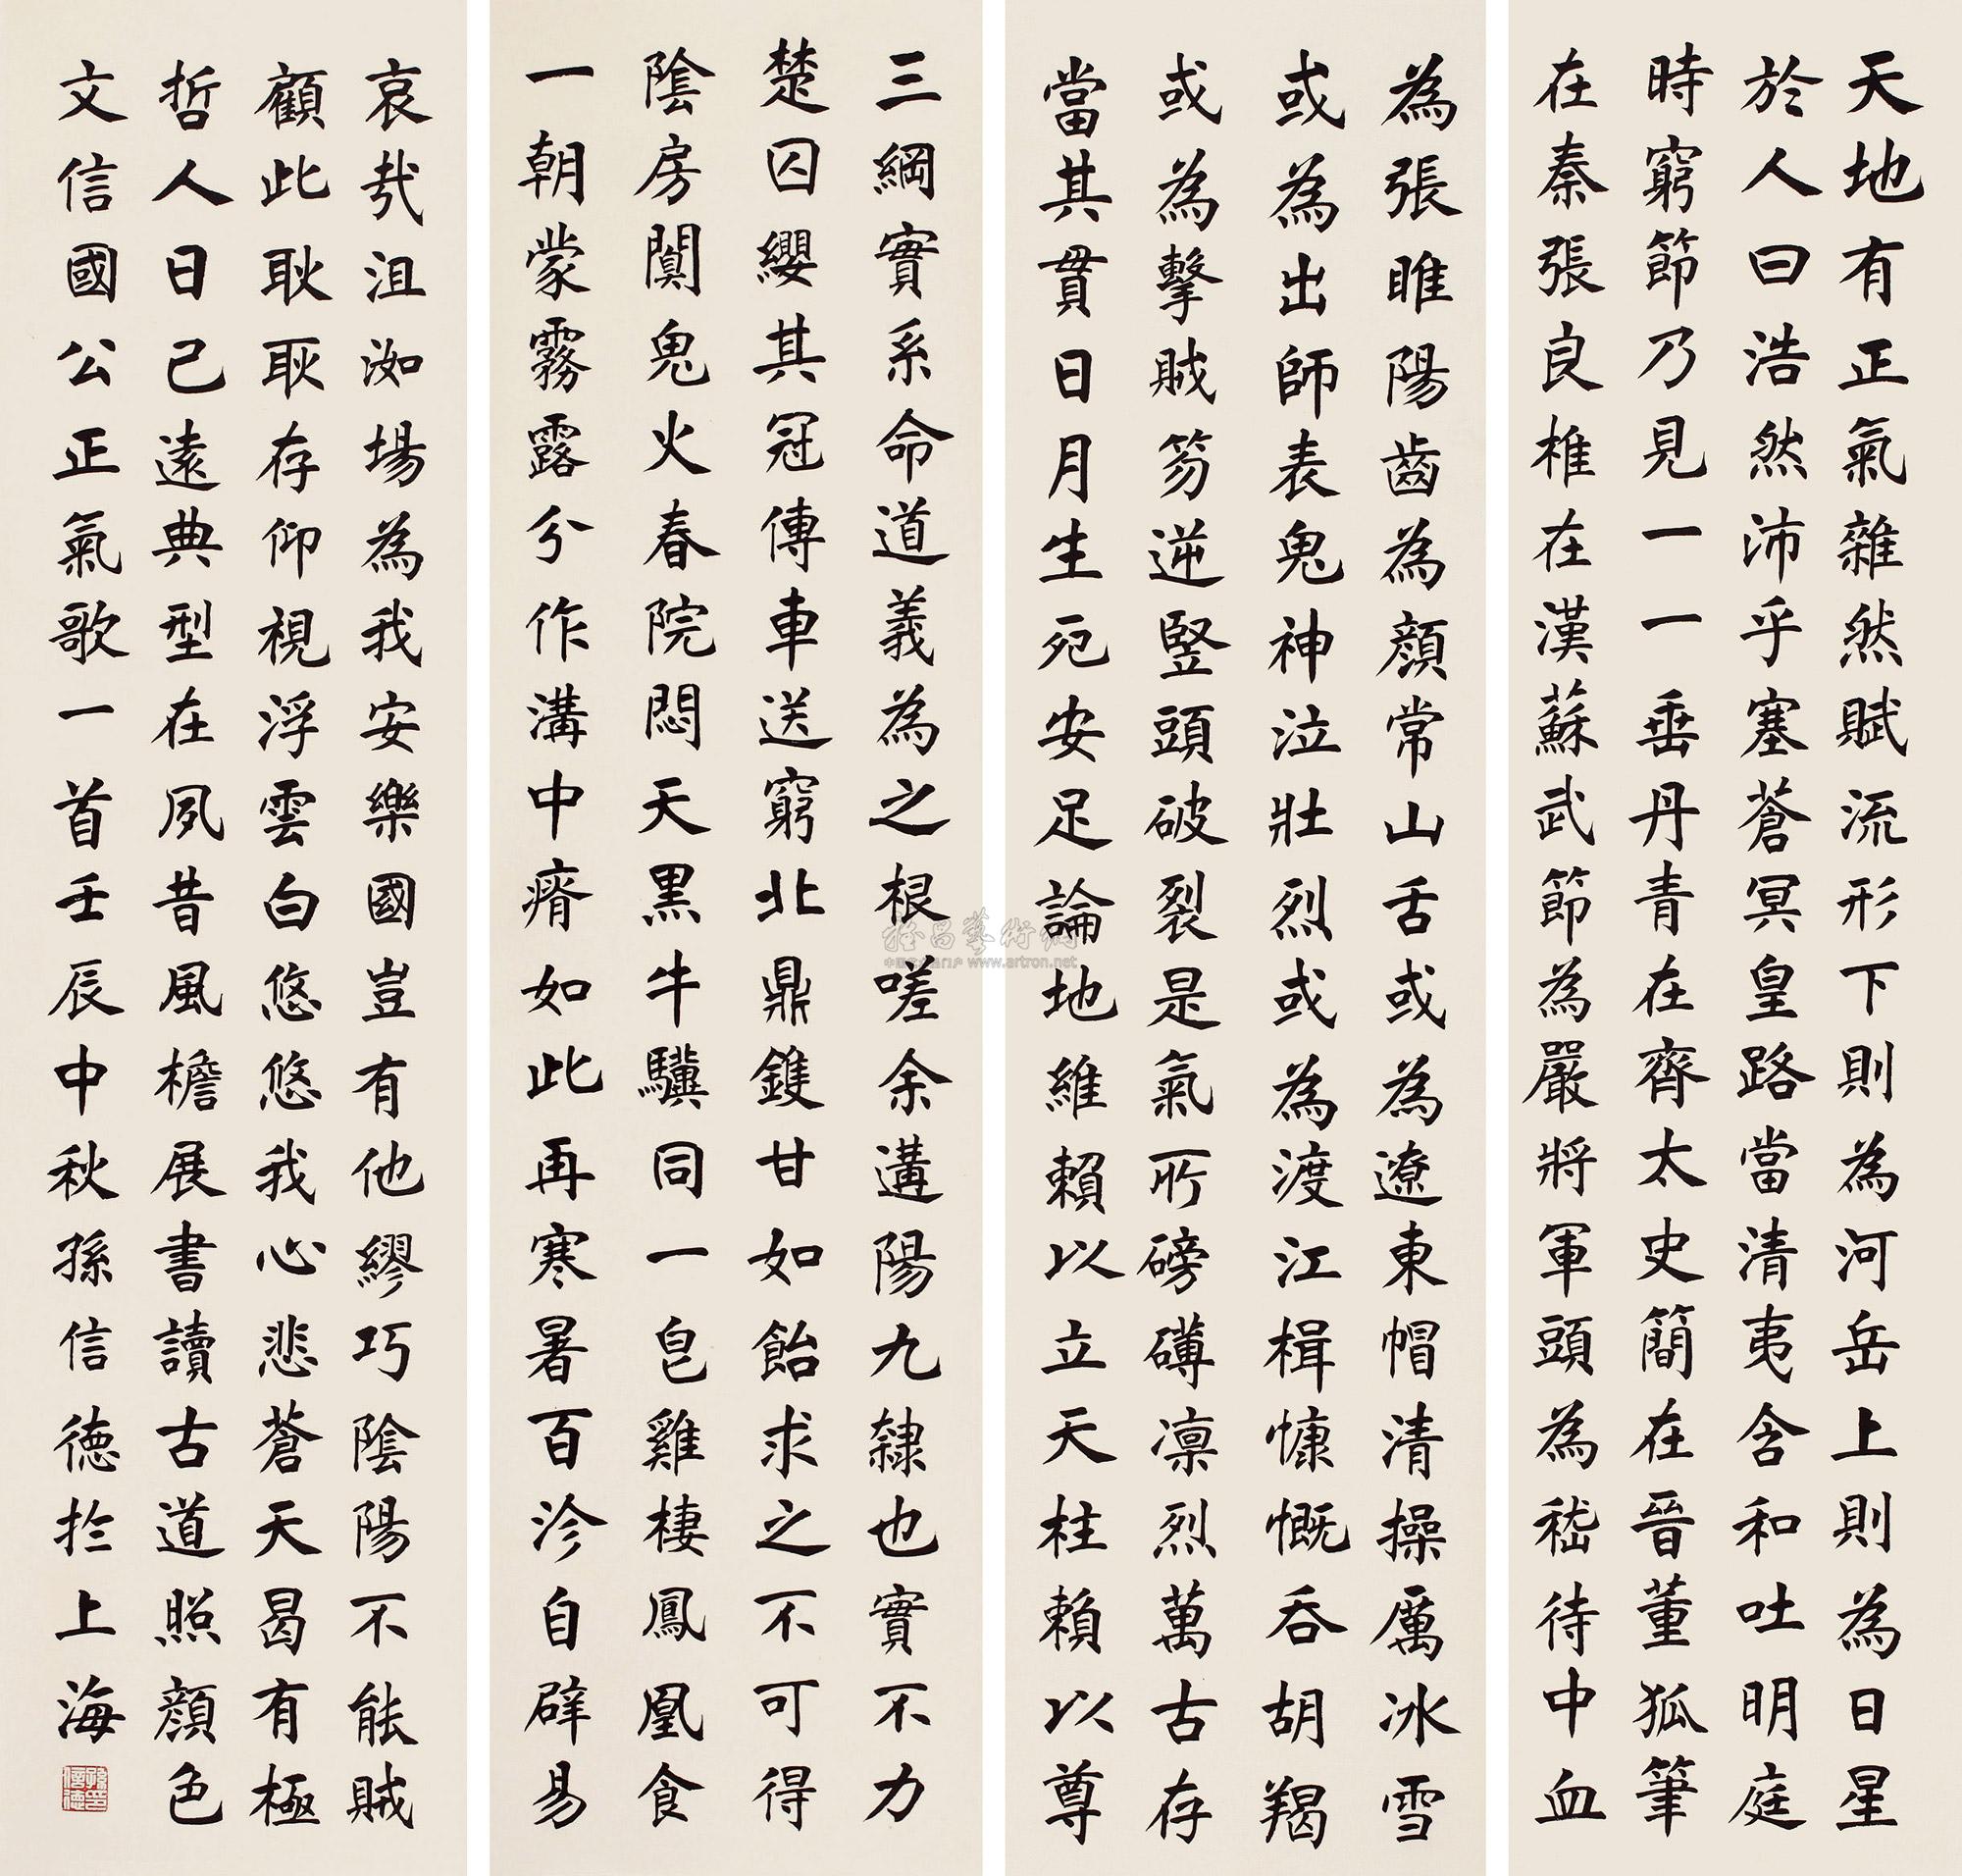 天地有正氣雜然賦流形下則為河岳上則為日星
於人曰浩然沛乎塞蒼冥皇路當清夷含和吐明庭
時窮節乃見一一垂丹青在齊太史簡在晉董狐筆
在秦張良椎在漢蘇武節為嚴將軍頭為嵇待中血
為張睢陽齒為顏常山舌或為遼東帽清操厲冰雪
或為出師表鬼神泣壯烈或為渡江楫慷慨吞胡羯
或為擊賊笏逆豎頭破裂是氣所磅礴凛烈萬古存
當其貫日月生死安足論地維賴以立天柱賴以尊
三綱實系命道義為之根嗟余遘陽九隸也實不力
楚囚纓其冠傳車送窮北鼎鑊甘如飴求之不可得
陰房闃鬼火春院悶天黑牛驥同一皂雞棲鳳凰食
一朝蒙霧露分作溝中瘠如此再寒暑百沴自辟易
哀哉沮洳場為我安樂國豈有他繆巧陰陽不能賊
顧此耿耿存仰視浮雲白悠悠我心悲蒼天曷有極
哲人日已遠典型在夙昔風檐展書讀古道照顏色
文信國公正氣歌一首壬辰中秋孫信德於上海
孫信德印
雅昌藝術網
www.artron.net